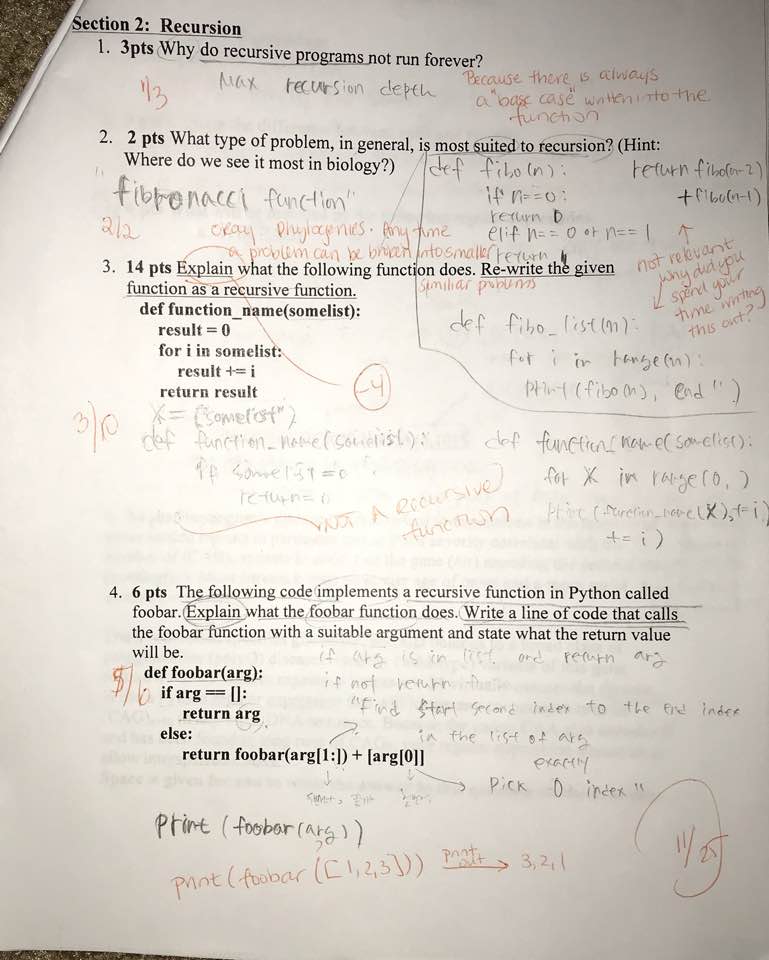 Section 2: Recursion
1. 3pts Why do recursive programs not run forever?
1/3
Max recursion depth
Because there is always
a "base case" written into the
function
2. 2 pts What type of problem, in general, is most suited to recursion? (Hint:
Where do we see it most in biology?)
"fibronacci function"
2/2
okay Phylogenies. Any time
a problem can be broken into smaller
similiar problems
def fibo(n):
if n==0:
return 0
elif n== 0 or n== 1
return 1
return fibo(n-2)
+fibo(n-1)
not relevant
why did you
spend your
time writing
this out?
def fibo_list(n):
for i in range(n):
print(fibo(n), end '')
3. 14 pts Explain what the following function does. Re-write the given
function as a recursive function.
def function_name(somelist):
result = 0
for i in somelist:
result += i
return result
-4
3/10
X= ("somelist")
def function_name(somelist):
if somelist=0
return=0
NOT A recursive
function
def function_name(somelist):
for X in range(0, )
print(function_name(X), += i)
+= i)
4. 6 pts The following code implements a recursive function in Python called
foobar. Explain what the foobar function does. Write a line of code that calls
the foobar function with a suitable argument and state what the return value
will be.
if arg is in list and return arg
def foobar(arg):
if arg == []:
return arg
else:
return foobar(arg[1:]) + [arg[0]]
if not return
"find start second index to the end index
in the list of arg
exactly
pick 0 index"
?
print (foobar(arg))
print(foobar([1,2,3])) print out 3,2,1
11/25